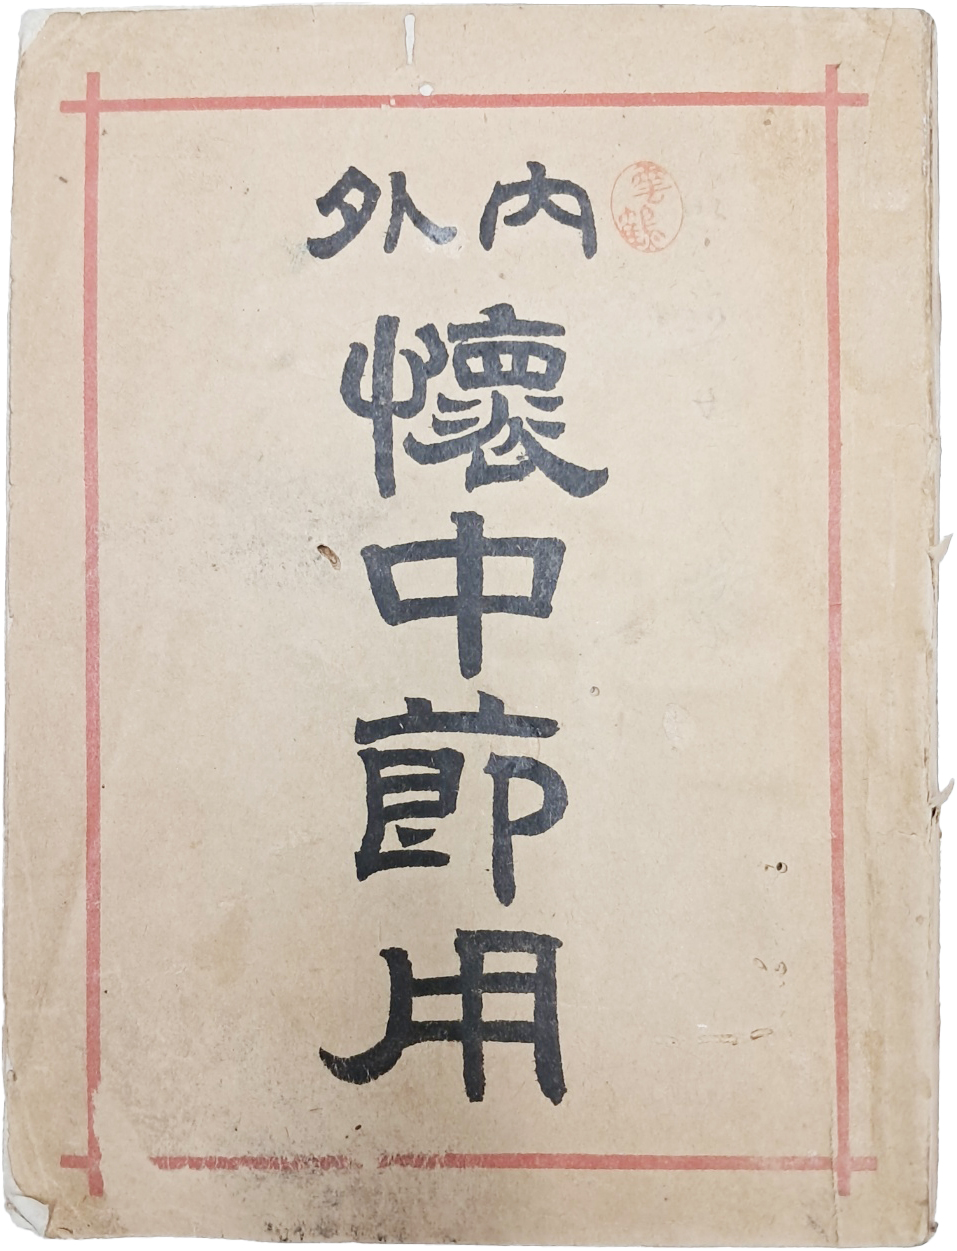 內外
懷中節用